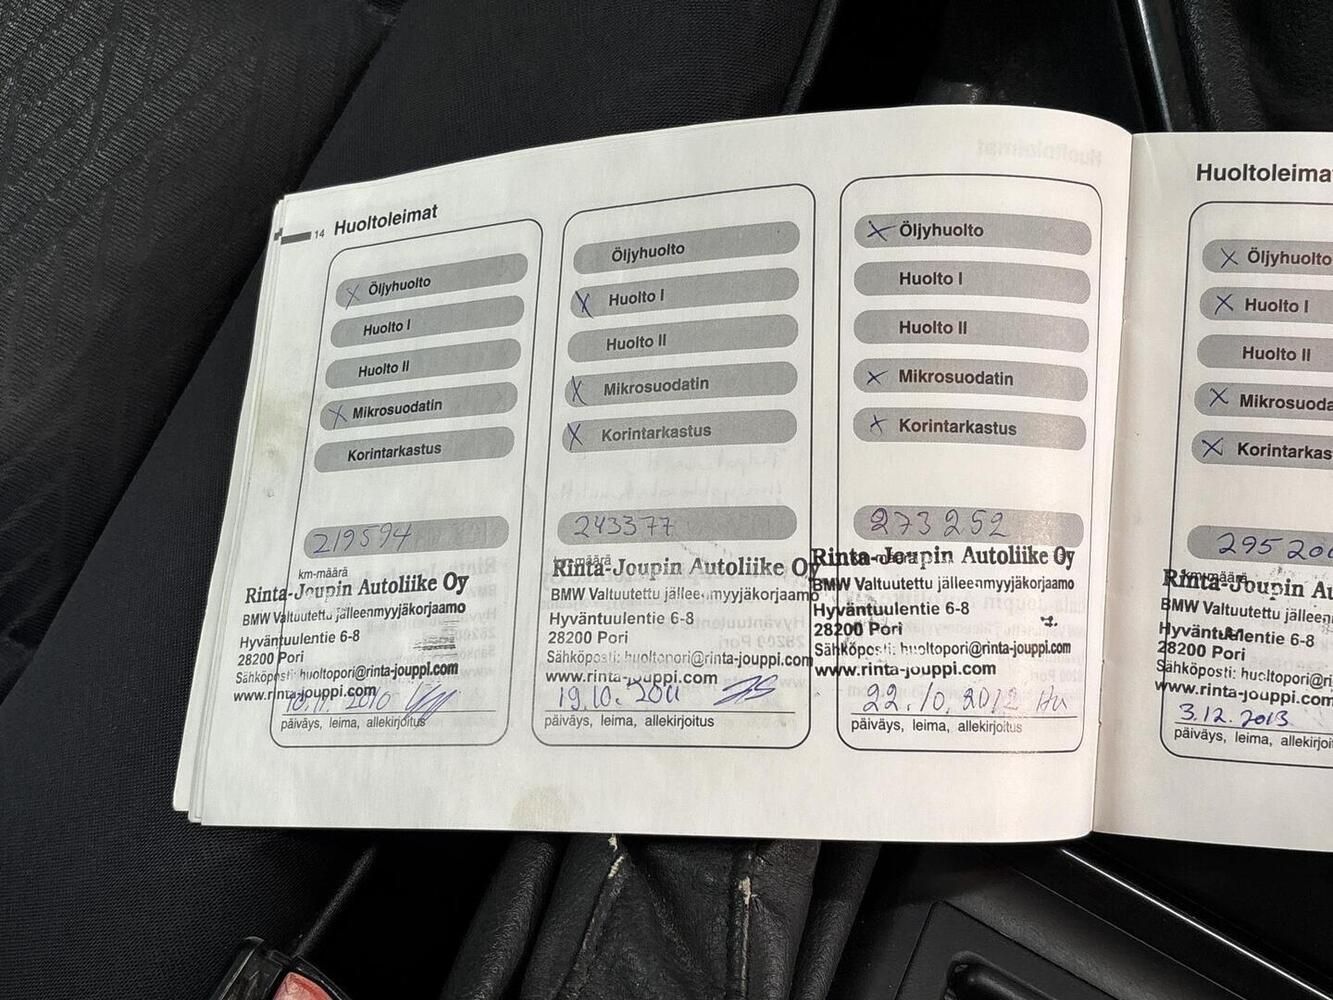 14 Huoltoleimat
X Öljyhuolto
Huolto I
Huolto II
X Mikrosuodatin
Korintarkastus
219594
km-määrä
Rinta-Joupin Autoliike Oy
BMW Valtuutettu jälleenmyyjäkorjaamo
Hyväntuulentie 6-8
28200 Pori
Sähköposti: huoltopori@rinta-jouppi.com
www.rinta-jouppi.com
2010
päiväys, leima, allekirjoitus
Öljyhuolto
X Huolto I
Huolto II
X Mikrosuodatin
X Korintarkastus
243377
km-määrä
Rinta-Joupin Autoliike Oy
BMW Valtuutettu jälleenmyyjäkorjaamo
Hyväntuulentie 6-8
28200 Pori
Sähköposti: huoltopori@rinta-jouppi.com
www.rinta-jouppi.com
19.10.2011
päiväys, leima, allekirjoitus
X Öljyhuolto
Huolto I
Huolto II
X Mikrosuodatin
X Korintarkastus
273252
km-määrä
Rinta-Joupin Autoliike Oy
BMW Valtuutettu jälleenmyyjäkorjaamo
Hyväntuulentie 6-8
28200 Pori
Sähköposti: huoltopori@rinta-jouppi.com
www.rinta-jouppi.com
22.10.2012
päiväys, leima, allekirjoitus
Huoltoleimat
X Öljyhuolto
X Huolto I
Huolto II
X Mikrosuoda
X Korintarkas
295200
km-määrä
Rinta-Joupin Au
BMW Valtuutettu jälleen
Hyväntuulentie 6-8
28200 Pori
Sähköposti: huoltopori@ri
www.rinta-jouppi.com
3.12.2013
päiväys, leima, allekirjoi